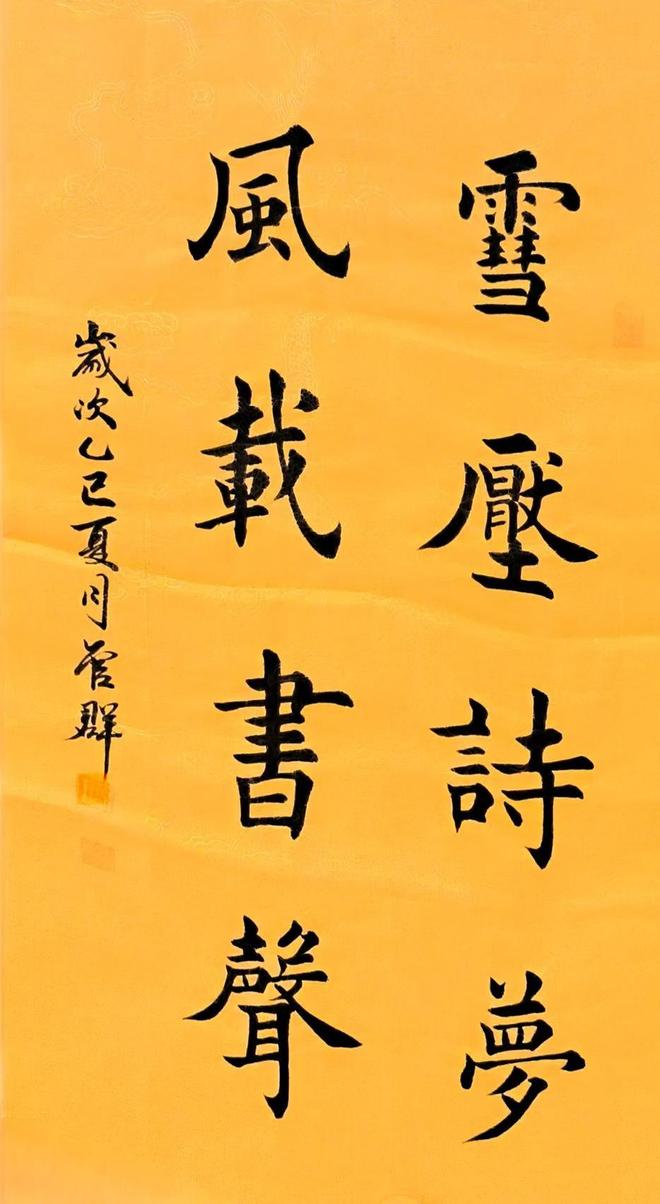 雪壓詩夢
風載書聲
歲次乙巳夏月管群